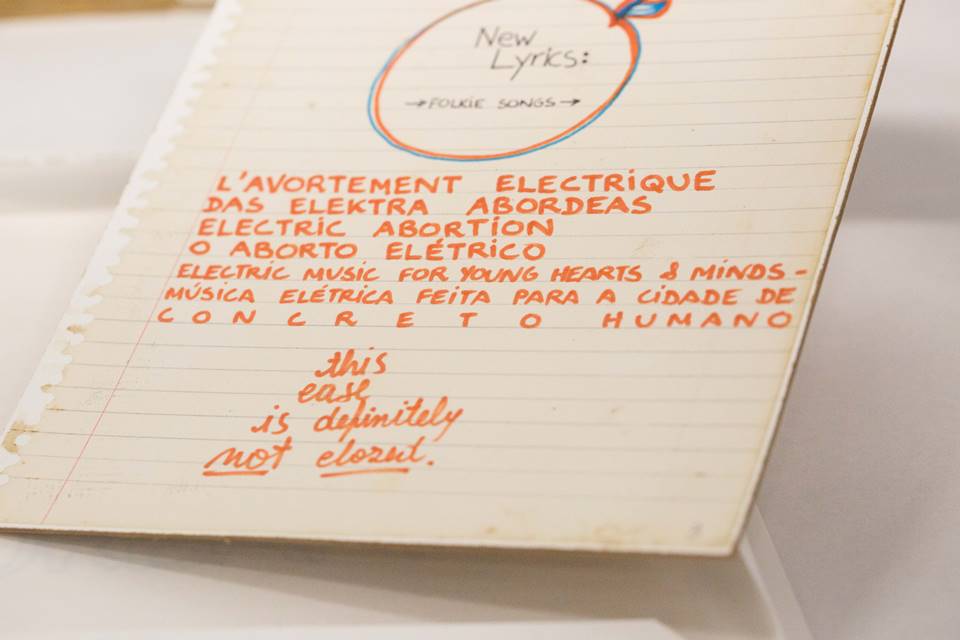 New
Lyrics:
→FOLKIE SONGS→
L'AVORTEMENT ELECTRiQUE
DAS ELEKTRA ABORDEAS
ELECTRIC ABORTION
O ABORTO ELÉTRICO
ELECTRIC MUSIC FOR YOUNG HEARTS & MINDS -
MÚSICA ELÉTRICA FEITA PARA A CIDADE DE
C O N C R E T O H U M A N O
this
case
is definitely
not closed.